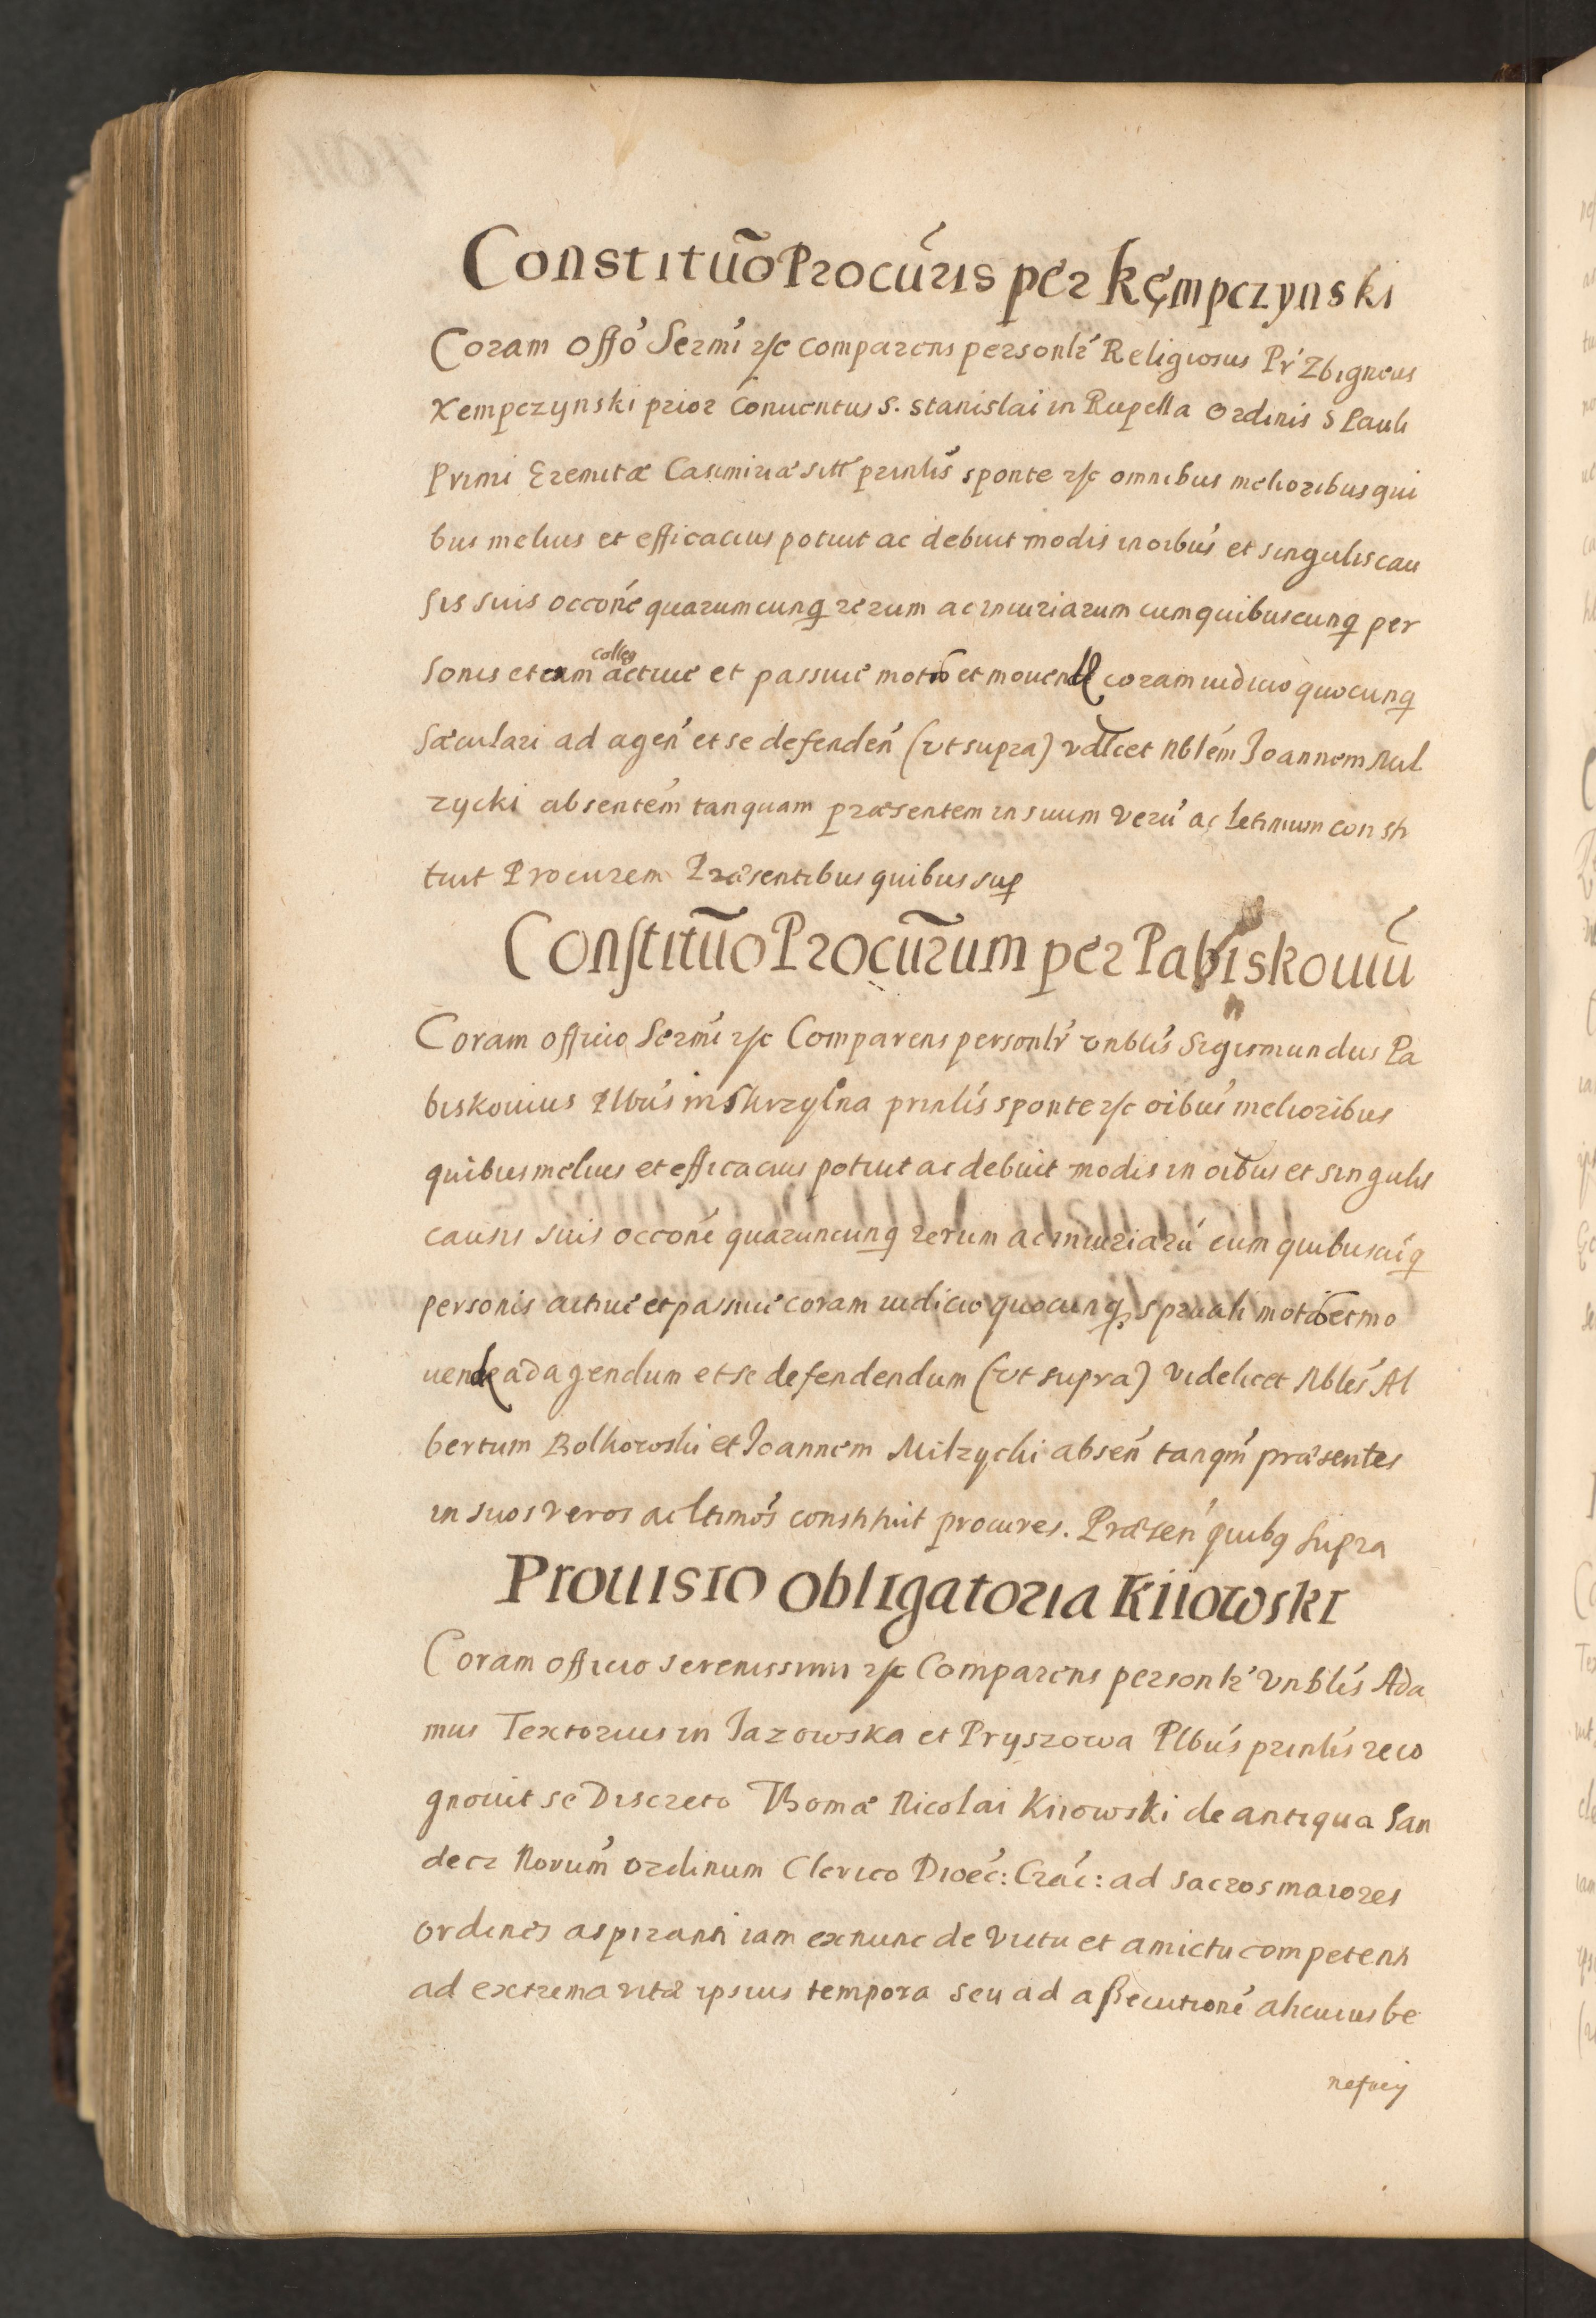 Constitūo Procu̍ris per Kęmpczynski
Coram Offo̍ Sermi̍ &c comparens personlr̍ Religiosus Pr̍ Zbigneus
Kempczynski prior Conuentus S. Stanislai in Rupella Ordinis S Pauli
Primi Eremitæ Casimiriæ prinlis̍ sponte &c omnibus melioribus qui
bus melius et efficacius potuit ac debuit modis in oibus̍ et singulis cau
sis suis occone̍ quarumcunq rerum ac iniuriarum cum quibuscunq per
sonis et eam colleg actiue et passiue motis et mouend coram iudicio quocunq
Sæculari ad agen̍ et se defenden̍ (vt supra) vdlcet Nblem̍ Joannem Mil
zycki absentem̍ tanquam præsentem in suum veru̍ ac letimum consti
tuit Procurem Præsentibus quibus sup
Constitūo Procūrum per Pabiskouiu̍
Coram officio Sermi̍ &c Comparens personlr̍ vnblis̍ Sigismundus Pa
biskouius Plbus̍ in Skrzylna prinlis̍ sponte &c oibus̍ melioribus
quibus melius et efficacius potuit ac debuit modis in oibus et singulis
causis suis occone̍ quaruncunq rerum ac iniuriaru̍ cum quibuscuq̍
personis actiue et passiue coram iudicio quocunq spruali motis et mo
uend ad agendum et se defendendum (vt supra) videlicet Nbles̍ Al
bertum Bolkowski et Joannem Milzycki absen̍ tanqm̍ præsentes
in suos veros ac ltimos̍ constituit procures. Præsen̍ quibq supra
Prouisio obligatoria Kiiowski
Coram officio serenissimi &c Comparens personlr̍ vnblis̍ Ada
mus Textorius in Jazowska et Pryszowa Plbus̍ prinlis̍ reco
gnouit se Discreto Thomæ Nicolai Kiiowski de antiqua San
decz Norum̍ ordinum Clerico Dioec̍: Crac̍: ad sacros maiores
ordines aspiranti iam exnunc de victu et amictu competenti
ad extrema vitæ ipsius tempora seu ad assecutione̍ alicuius be
neficij